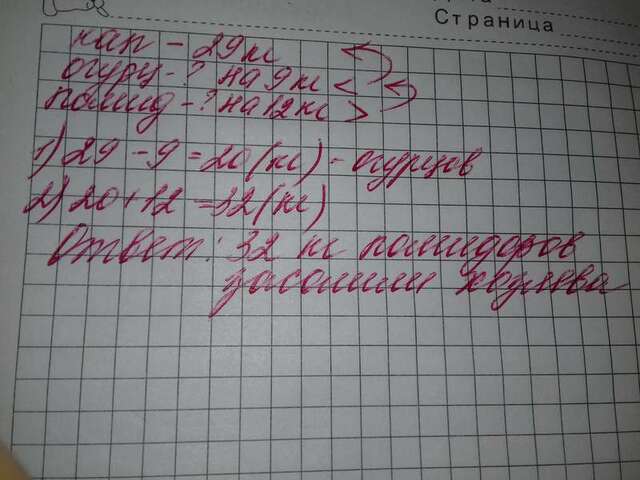 Страница
кап - 29 кг
огур - ? на 9 кг <
помид - ? на 12 кг >
1) 29 - 9 = 20 (кг) - огурцов
2) 20 + 12 = 32 (кг)
Ответ: 32 кг помидоров
засолили хозяева